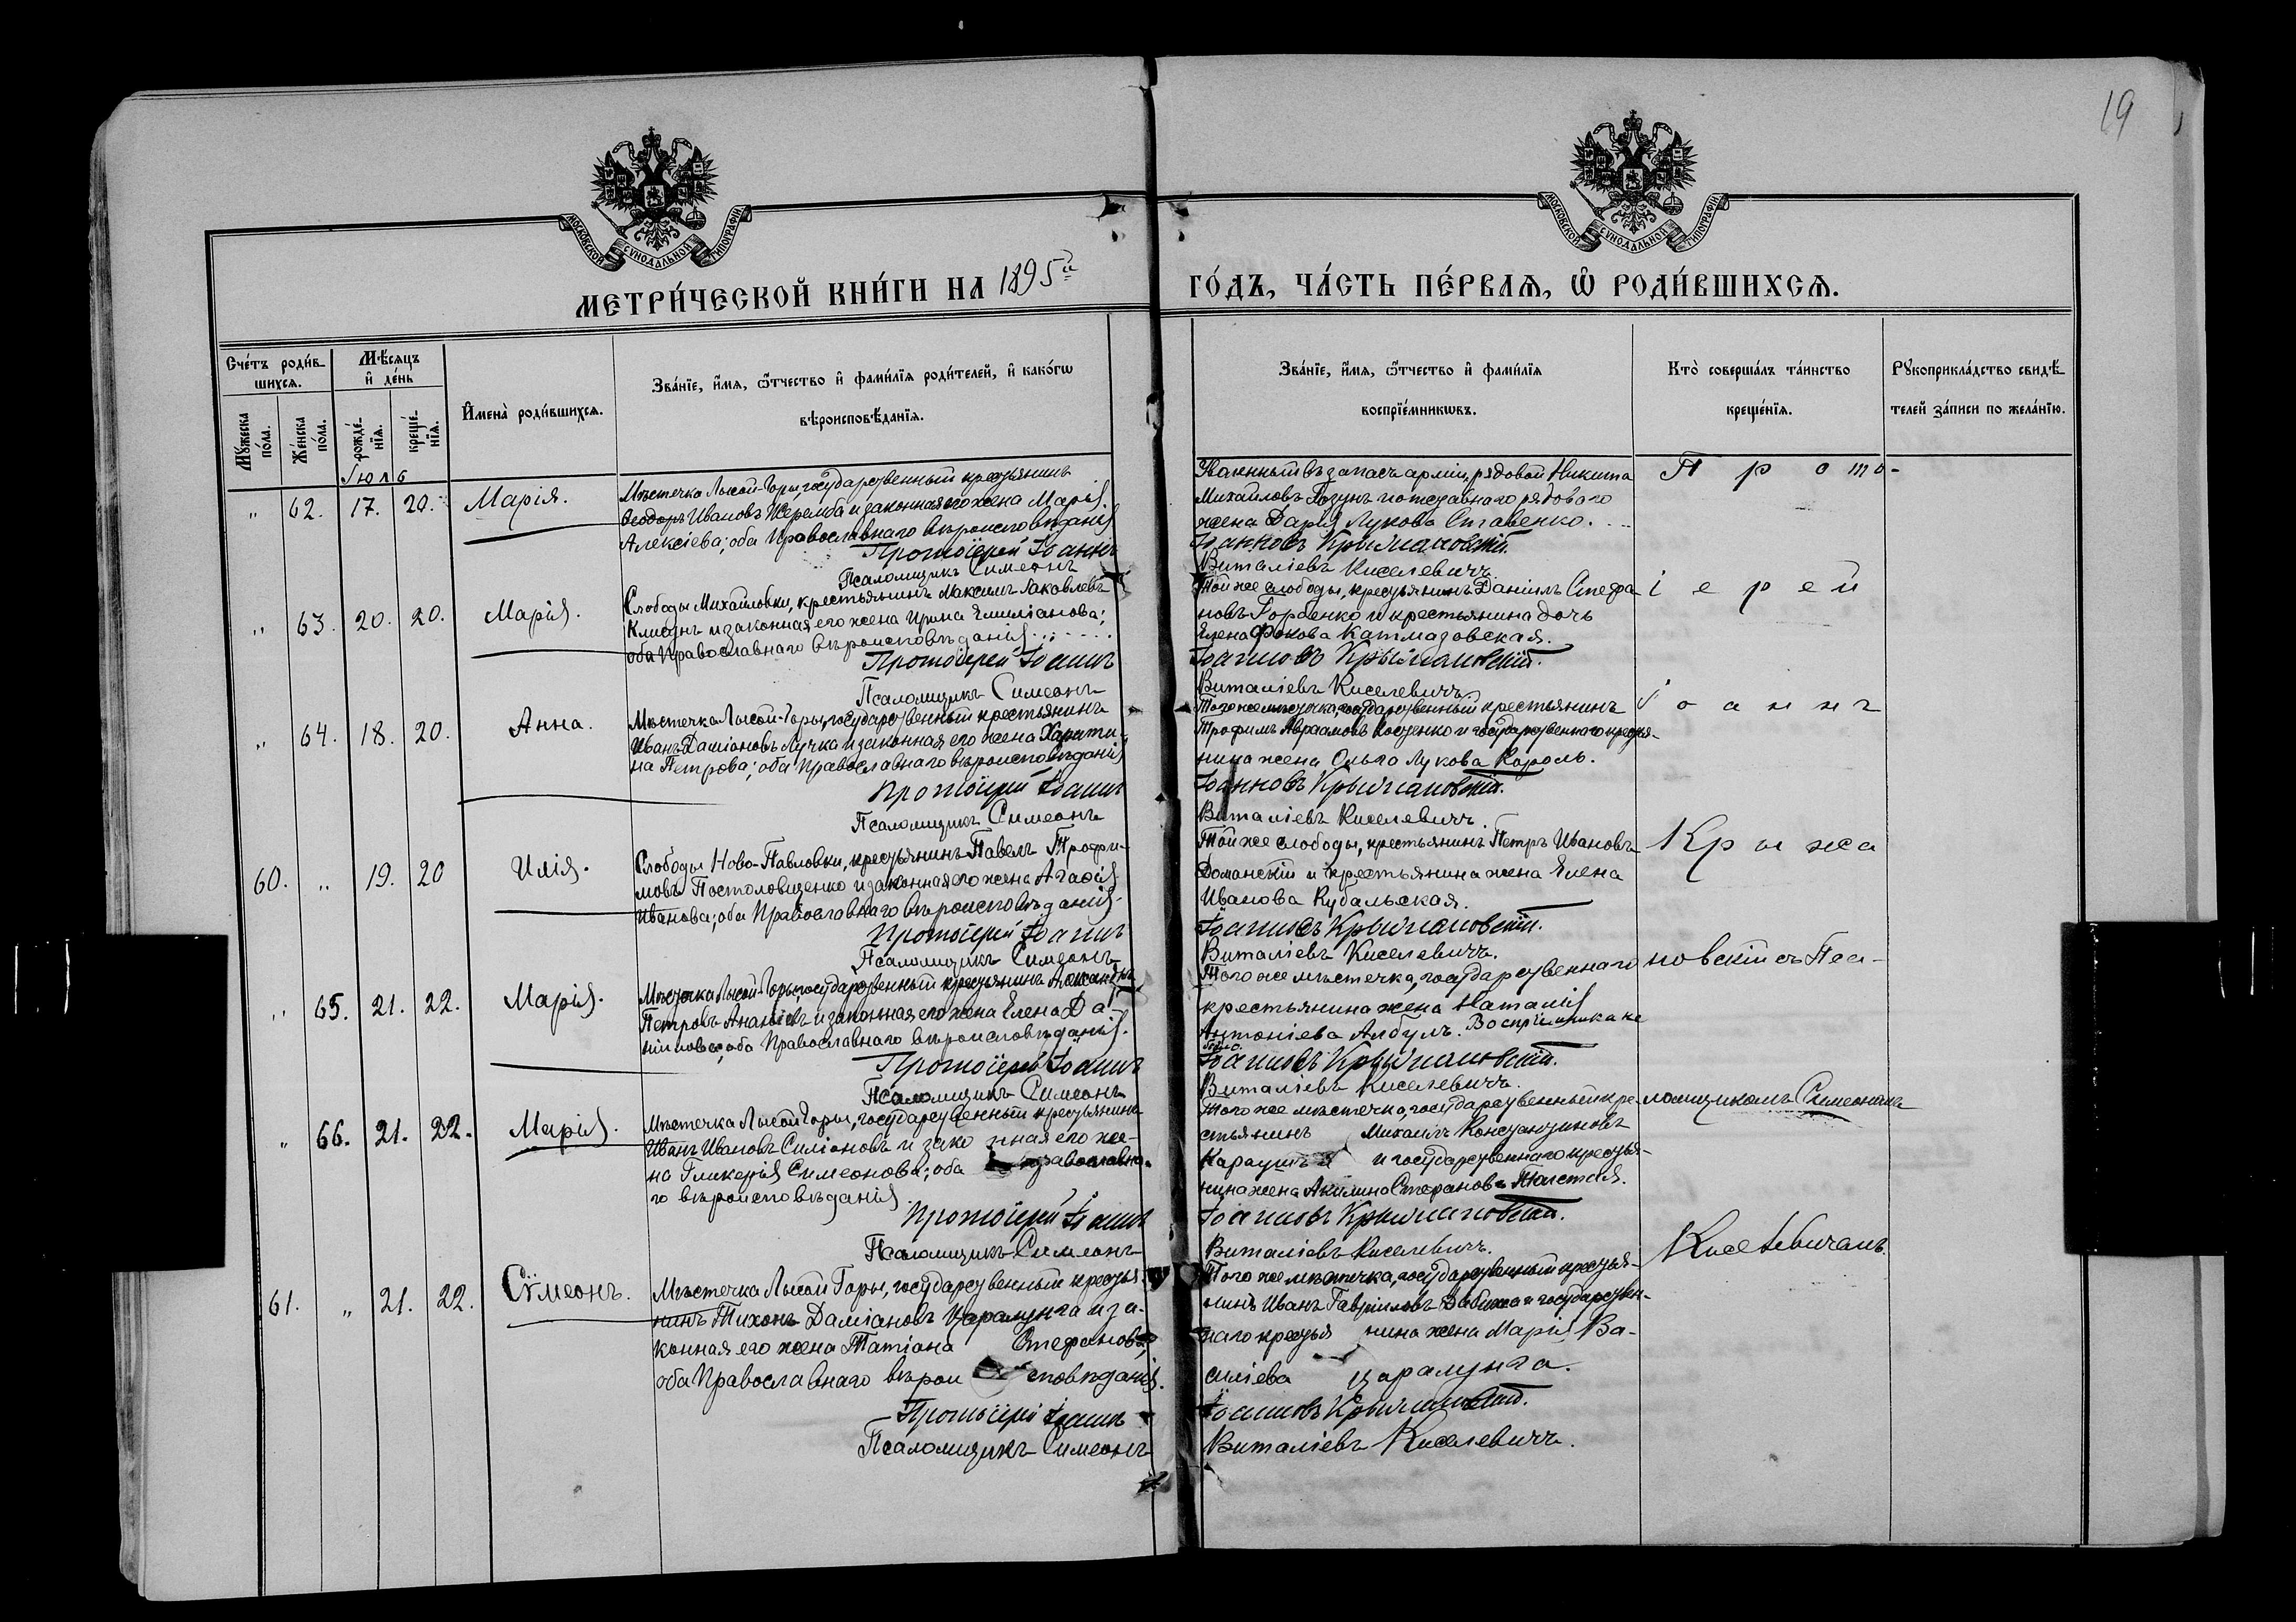 19
МОСКОВСКОЙ СѴНОДАЛЬНОЙ ТИПОГРАФІИ
МОСКОВСКОЙ СѴНОДАЛЬНОЙ ТИПОГРАФІИ
МЕТРИ́ЧЕСКОЙ КНИ́ГИ НА 1895й
ГО́ДЪ, ЧА́СТЬ ПЕ́РВАЯ, Ѡ РОДИ́ВШИХСЯ.
Сче́тъ роди́в-
шихся.
Мѣ́сяцъ
и҆ де́нь
Мꙋ́жеска по́ла.
Же́нска по́ла.
рожде́-нїя.
креще́-нїя.
И҆мена̀ роди́вшихся.
Зва́нїе, и҆́мя, ѻ҆́тчество и҆ фами́лїя роди́телей, и҆ како́гѡ
вѣроисповѣ́данїя.
Зва́нїе, и҆́мя, ѻ҆́тчество и҆ фами́лїя
воспрїе́мникѡвъ.
Кто̀ соверша́лъ та́инство
креще́нїя.
Рꙋкоприкла́дство свидѣ́-
телей за́писи по жела́нїю.
Іюль
" 62. 17. 20. Марія.
Мѣстечка Лысой-Горы, государственный крестьянинъ
Ѳеодоръ Ивановъ Жеремба и законная его жена Марія
Алексіева; оба Православнаго вѣроисповѣданія
Протоіерей Іоаннъ
Псаломщикъ Симеонъ
въ запасъ арміи, рядовой Никита
Михайловъ и отставнаго рядоваго
жена Дарія Лукова Ставенко.
Іоанновъ Крыжановскій.
Виталіевъ Киселевичъ.
" 63. 20. 20. Марія.
Слободы Михайловки, крестьянинъ Максимъ Іаковлевъ
и законная его жена Ирина Емиліанова;
оба Православнаго вѣроисповѣданія
Протоіерей Іоаннъ
Псаломщикъ Симеонъ
Той же слободы, крестьянинъ Даніилъ Стефа-
новъ Горбенко и крестьянина дочь
Елена Фокова Катмазовская.
Іоанновъ Крыжановскій.
Виталіевъ Киселевичъ.
" 64. 18. 20. Анна.
Мѣстечка Лысой-Горы, государственный крестьянинъ
Иванъ Даміановъ Лучка и законная его жена Харити-
на Петрова; оба Православнаго вѣроисповѣданія
Протоіерей Іоаннъ
Псаломщикъ Симеонъ
Того же мѣстечка, государственный крестьянинъ
Трофимъ Авраамовъ Костенко и государственнаго крестья-
нина жена Ольга Лукова Король.
Іоанновъ Крыжановскій.
Виталіевъ Киселевичъ.
60. " 19. 20 Илія.
Слободы Ново-Павловки, крестьянинъ Павелъ Трофи-
мовъ Постоловщенко и законная его жена Агаѳія
Иванова; оба Православнаго вѣроисповѣданія.
Протоіерей Іоаннъ
Псаломщикъ Симеонъ
Той же слободы, крестьянинъ Петръ Ивановъ
Доманскій и крестьянина жена Елена
Иванова Кубальская.
Іоанновъ Крыжановскій.
Виталіевъ Киселевичъ.
" 65. 21. 22. Марія.
Мѣстечка Лысой-Горы, государственный крестьянинъ Александръ
Петровъ Ананьевъ и законная его жена Елена Да-
ніилова; оба Православнаго вѣроисповѣданія.
Протоіерей Іоаннъ
Псаломщикъ Симеонъ
Того же мѣстечка, государственнаго
крестьянина жена Наталія
Антоніева Албулъ. Воспріемника не
было.
Іоанновъ Крыжановскій.
Виталіевъ Киселевичъ.
" 66. 21. 22. Марія.
Мѣстечка Лысой Горы, государственный крестьянинъ
Иванъ Ивановъ Силіановъ и законная его же-
на Гликерія Симеонова; оба православна-
го вѣроисповѣданія
Протоіерей Іоаннъ
Псаломщикъ Симеонъ
Того же мѣстечка, государственный кре-
стьянинъ Михаилъ Константиновъ
Караушъ и государственнаго крестья-
нина жена Акилина Стефанова Толстая.
Іоанновъ Крыжановскій.
Виталіевъ Киселевичъ.
61. " 21. 22. Сѵмеонъ.
Мѣстечка Лысой Горы, государственный крестья-
нинъ Тихонъ Даміановъ Царалунга и за-
конная его жена Татіана Стефанова;
оба Православнаго вѣроисповѣданія.
Протоіерей Іоаннъ
Псаломщикъ Симеонъ
Того же мѣстечка, государственный крестья-
нинъ Иванъ Гавріиловъ Дабижа и государствен-
наго крестьянина жена Марія Ва-
силіева Царалунга.
Іоанновъ Крыжановскій.
Виталіевъ Киселевичъ.
Прото-
іерей
Іоаннъ
Крыжа
новскій съ Пса-
ломщикомъ Симеономъ
Киселевичемъ.